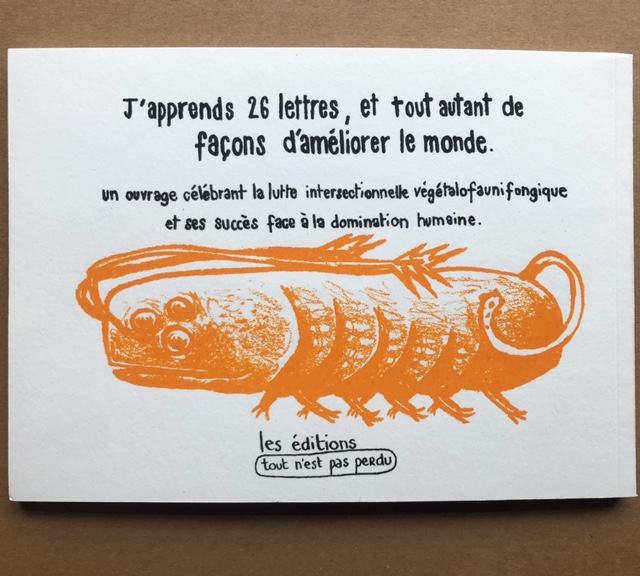 J'apprends 26 lettres, et tout autant de
façons d'améliorer le monde.
un ouvrage célébrant la lutte intersectionnelle végétalofaunifongique
et ses succès face à la domination humaine.
les éditions
tout n'est pas perdu